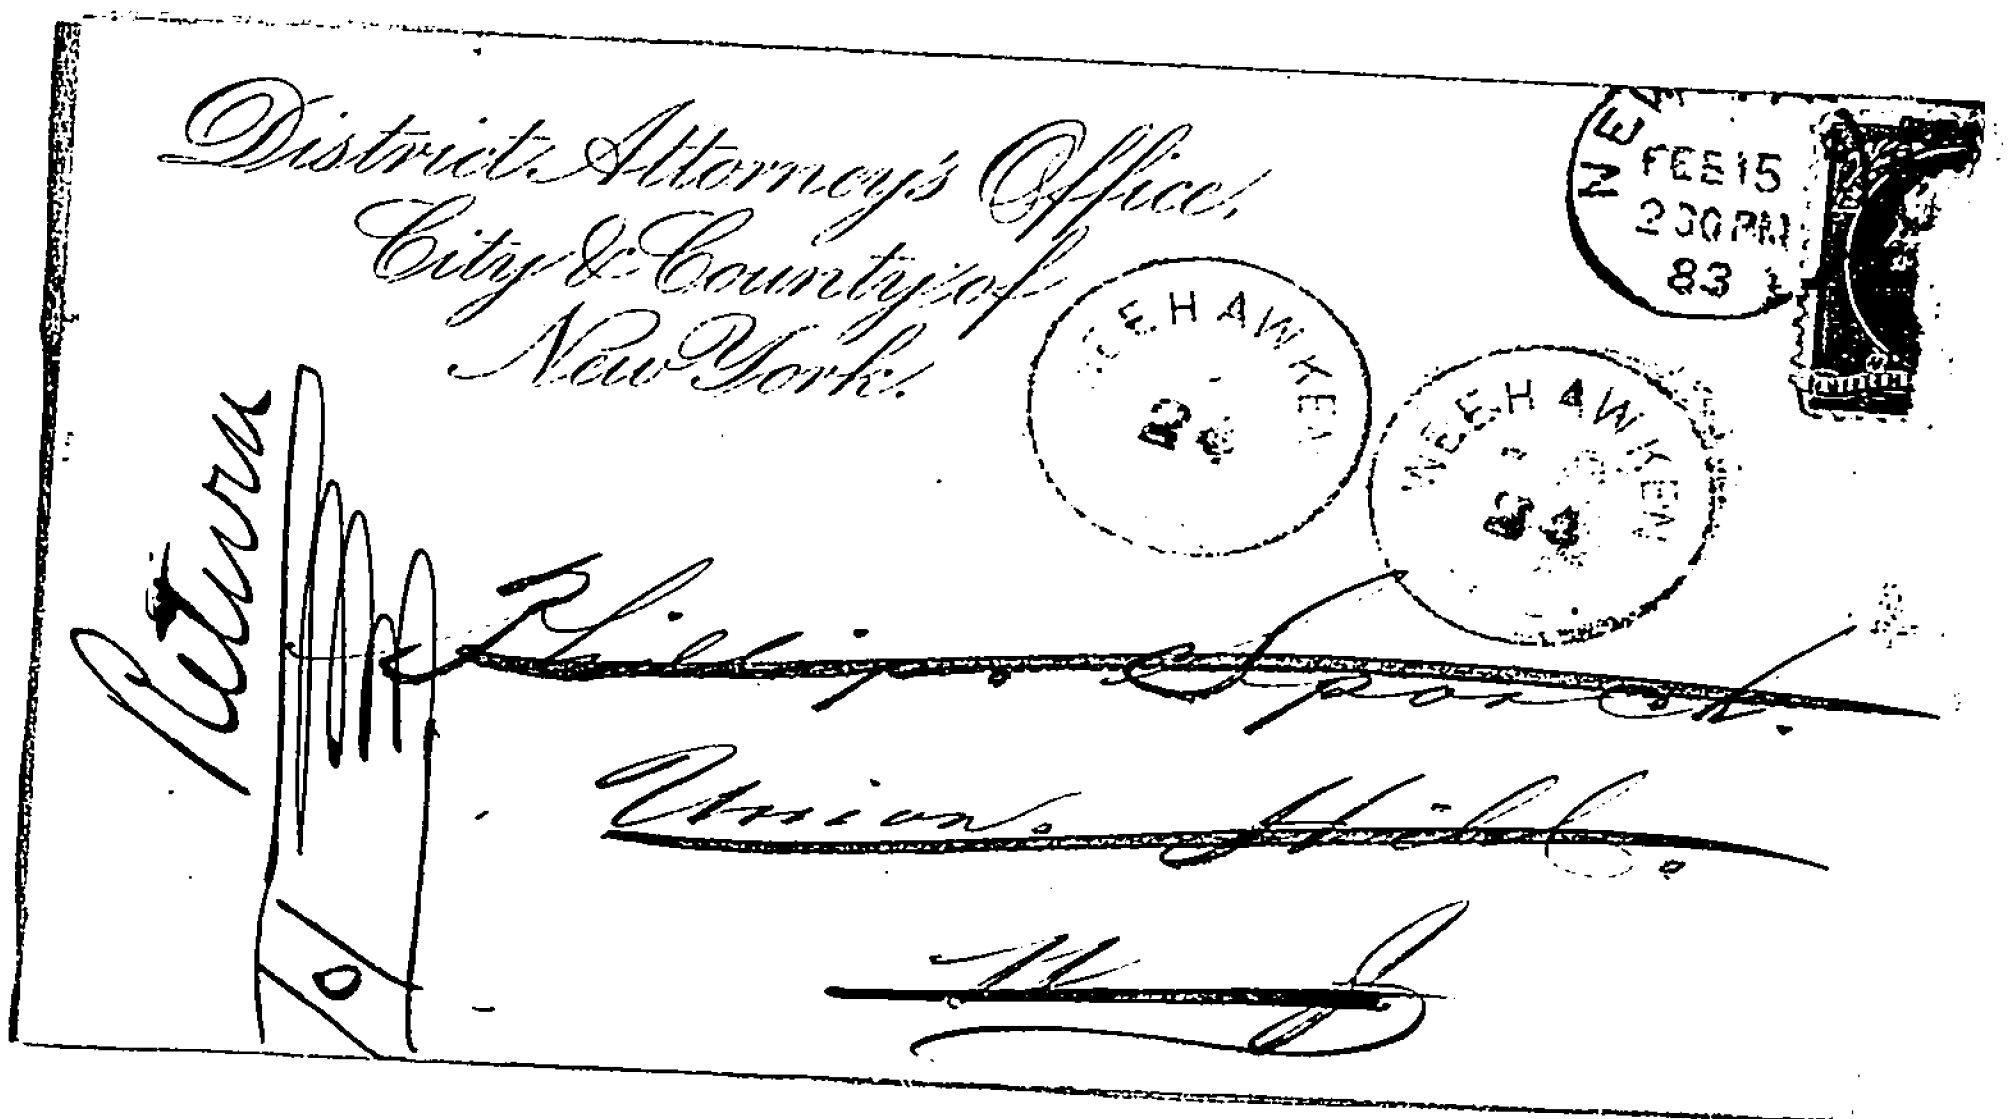 District Attorney's Office,
City & County of
New York.
NEW
FEB 15
2 30 PM
83
WEEHAWKEN
WEEHAWKEN
Return
Philip. Sporck.
Union. Hill.
N J